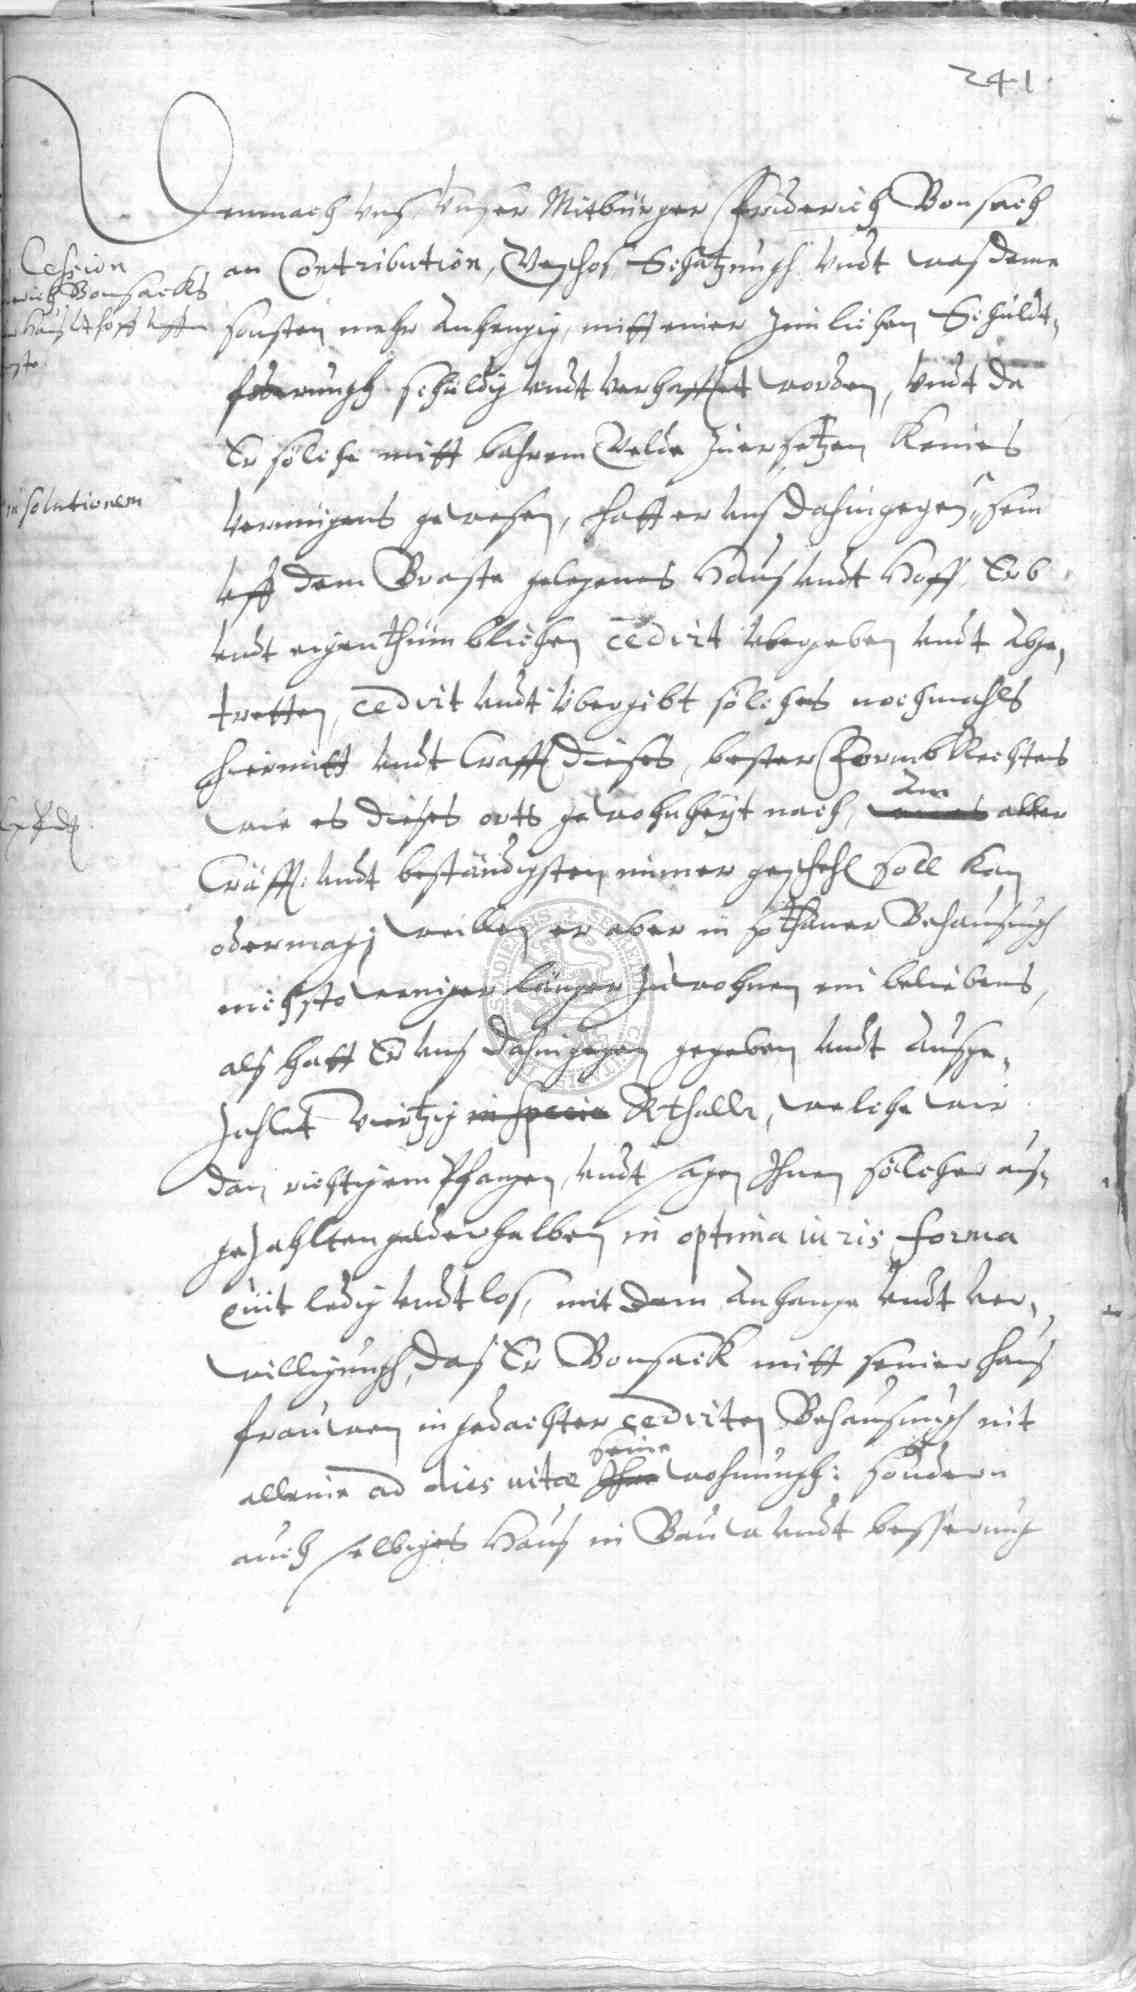 241.
Demnach Unß Unser Mitbürger Friderich Bonsack
Cession
an Contribution, Geschos Schatzungh Undt waß deme
Bonsacks
sonsten mehr Anhengig, mitt einer Zimlichen Schuldt-
Hauß Undt hoff Uffm
foderungh schuldig Undt Verhafftet worden, Undt da
Er solche mitt bahrem Gelde Zuersetzen Keines
in solutionem
Vermügens gewesen, hatt er Unß dahingegen, sein
Uff dem Graste gelegenes Hauß Undt Hoff, Erb
Undt eigenthümblichen cedirt Ubergeben Undt Abge-
tretten, cedirt Undt Ubergibt solches nochmahls
hiermitt Undt Crafft dieses, bester Formb Rechtes
wie es dieses orts gewohnheit nach, Am aller
Cräfft: Undt beständigsten immer gescheh soll Kan
oder mag, weillen er aber in sothaner Behausungh
nichsto weniger länger Zu wohnen ein beliebens,
alß hatt Er Unß dahingegen gegeben Undt Ausge-
Zahlet Viertzig in specie Rthaller, welche wir
dan richtig empfangen, Undt sagen Ihnen solcher auß-
geZahlten gelder halben in optima iuris forma
quit ledig Undt loß, mit dem Anhange Undt Ver-
willigungh, daß Er Bonsack mitt seiner Hauß
frauwen in gedachter cedirten Behausungh nit
alleine ad dies vitæ seine wohnungh: sondern
auch selbiges Hauß in Bauw Undt besserung